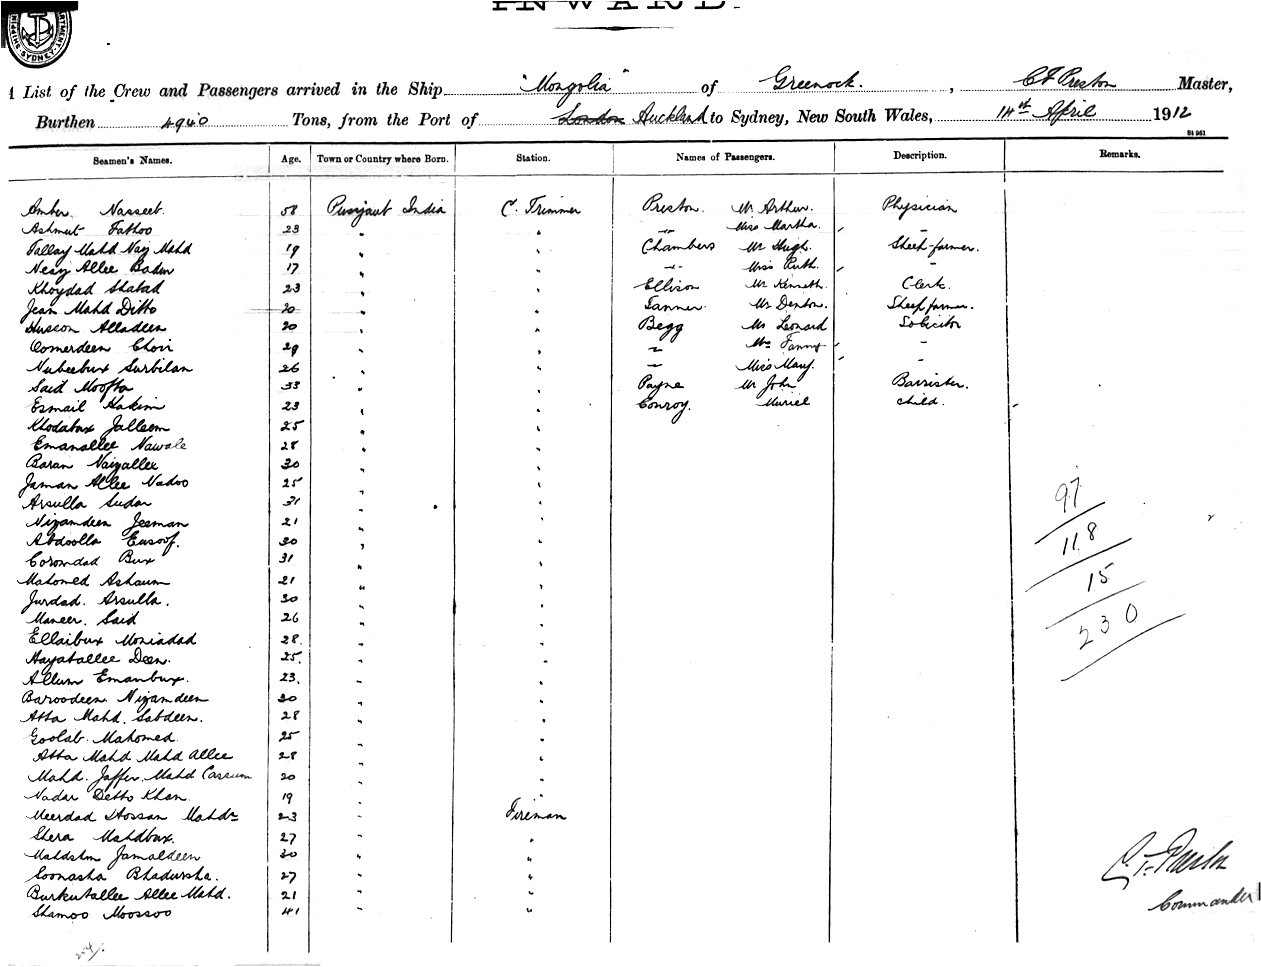 INWARD.
List of the Crew and Passengers arrived in the Ship "Mongolia" of Greenock. , C F Preston Master,
Burthen 4940 Tons, from the Port of London Auckland to Sydney, New South Wales, 14th April 1912
St 961
Seamen's Names. Age. Town or Country where Born. Station. Names of Passengers. Description. Remarks.
Amber Nasseeb. 58 Punjaub India C. Trimmer Preston. Mr Arthur. Physician
Ashmut Fathoo 23 " " " Miss Martha. "
Fallay Mahd Nay Mahd 19 " " Chambers Mr Hugh. Sheep-farmer.
Allee 17 " " " Miss Ruth. "
Khoydad Shabad 23 " " Ellison Mr Kenneth. Clerk.
Jean Mahd Ditto 20 " " Tanner. Mr Denton. Sheep farmer.
Husson Alladeen 20 " " Begg Mr Leonard Solicitor
Oomerdeen Choir 29 " " " Mrs Fanny "
Nubeebux Surbilan 26 " " " Miss Mary. "
Said Moofta 33 " " Payne Mr John Barrister.
Esmail Hakim 23 " " Conroy. Muriel child.
Khodabux Jalleem 25 " "
Emanallee Nawale 28 " "
Baran Naizallee 30 " "
Jaman Allee Nadoo 25 " "
Arsulla Sudar 31 " "
Nizamdeen Jeeman 21 " "
Abdoolla Eusoof. 30 " "
Coromdad Bux 31 " "
Mahomed Ashaum 21 " "
Jurdad. Arsulla. 30 " "
Maneer. Said 26 " "
Ellaibux Moniadad 28. " "
Hayatallee Deen. 25. " "
Allum Emanbux. 23. " "
Baroodeen Nizamdeen 30 " "
Atta Mahd. Sabdeen. 28 " "
Goolab. Mahomed. 25 " "
Atta Mahd Mahd Allee 28 " "
Mahd. Jaffer. Mahd Cassum 20 " "
Nadar Ditto Khan. 19 " "
Meerdad Hossan Mahd 23 " Fireman
Shera Mahdbux. 27 " "
Jamaldeen 30 " "
Coonasha Bhadursha. 27 " "
Burkutallee Allee Mahd. 21 " "
Shamoo Moossoo 41 " "
97
118
15
230
C. F. Preston
Commander